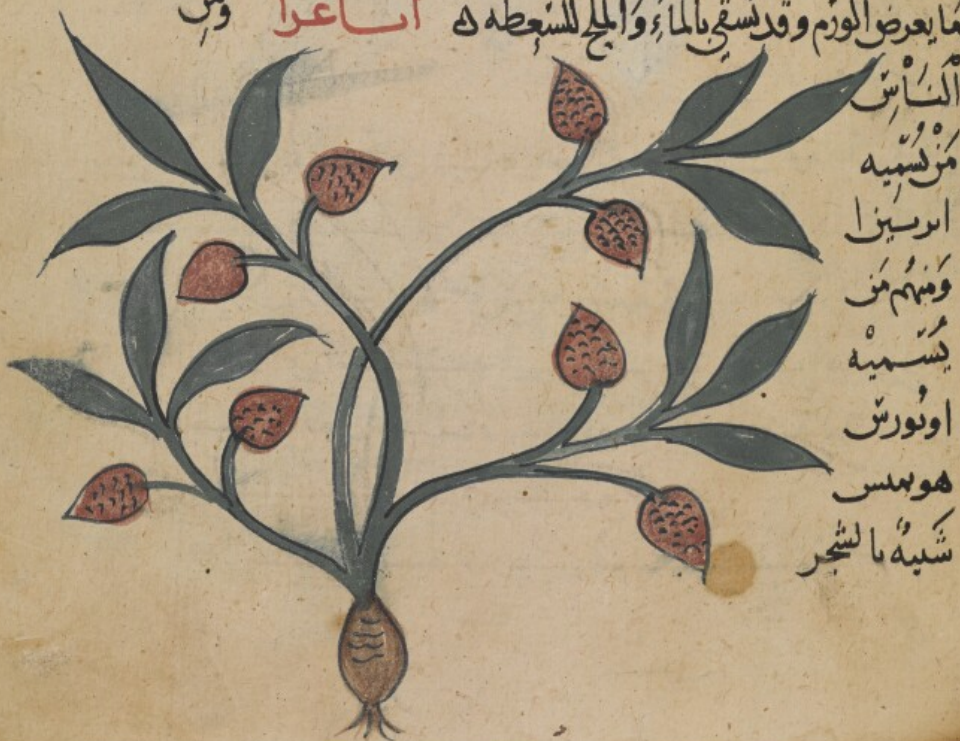 ما يعرض الورم وقد تسقى بالماء والملح للسعطه اناعرا ومن
الناس
من يسميه
ابرسيزا
ومنهم من
يسميه
اونورس
هوميس
شبيه بالشجر